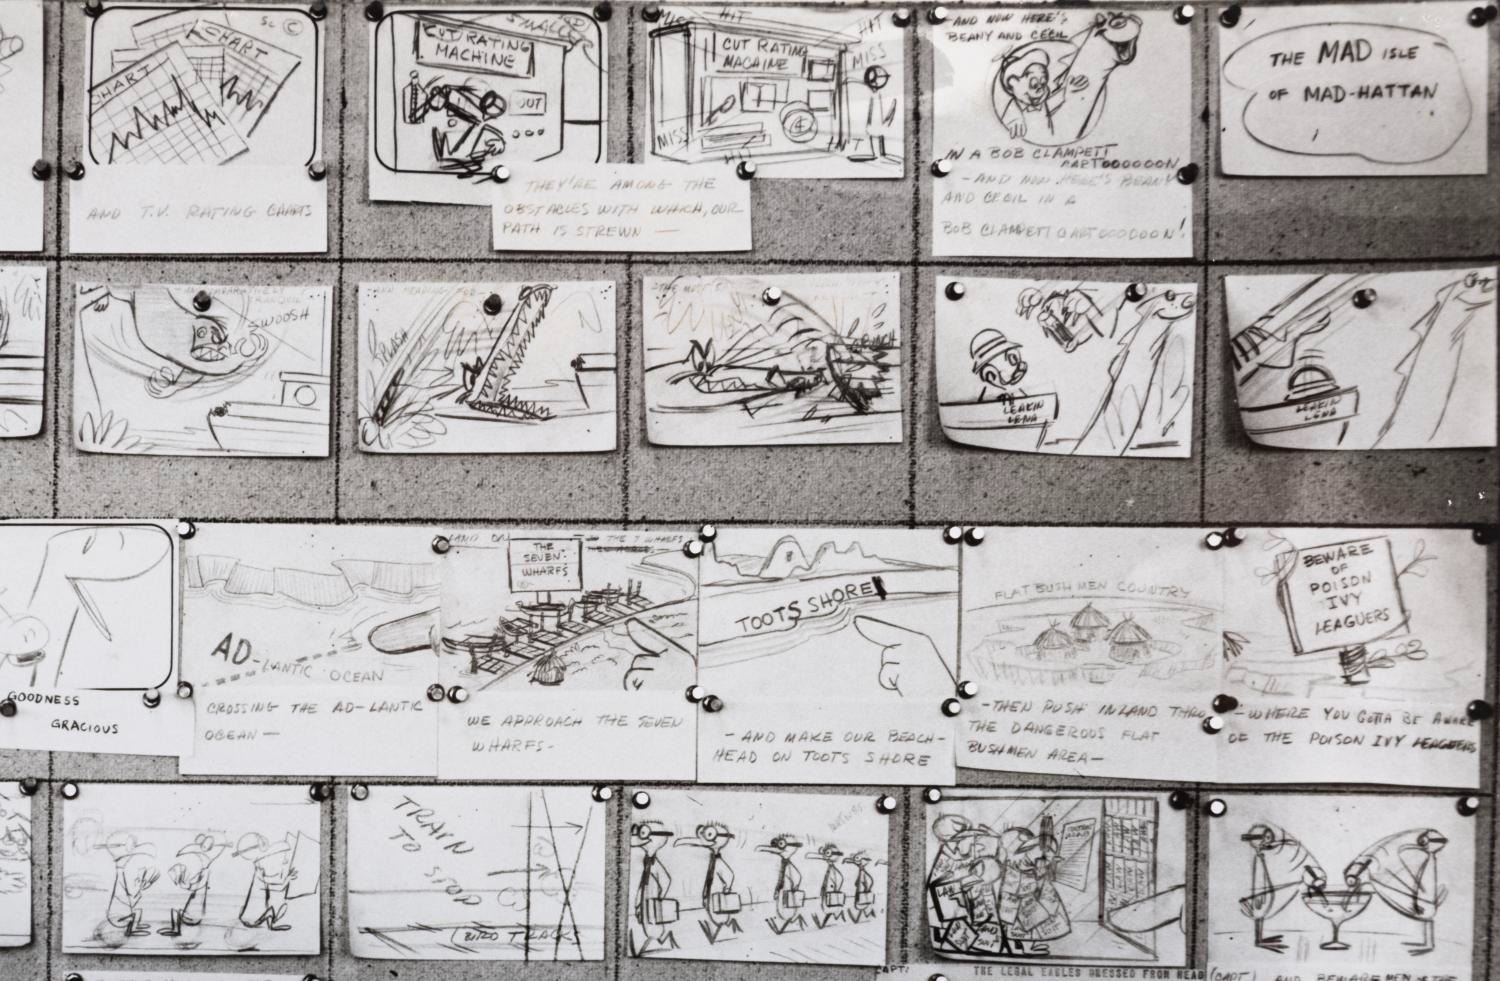 Sc ©
CHART
CHART
AND T.V. RATING CHARTS
SMALLER
CUT RATING
MACHINE
OUT
THEY'RE AMONG THE
OBSTACLES WITH WHICH, OUR
PATH IS STREWN —
MISS
HIT
HIT
MISS
CUT RATING
MACAINE
MISS
HIT
HIT
-AND NOW HERE'S
BEANY AND CECIL
IN A BOB CLAMPETT
CARTOOOOOON
-AND NOW HERE'S BEANY
AND CECIL IN A
BOB CLAMPETT CARTOOOOOON!
THE MAD ISLE
OF MAD-HATTAN
SWOOSH
SPLASH
CRUNCH
THE
LEAKIN
LENA
LEAKIN
LENA
GOODNESS
GRACIOUS
AD-LANTIC OCEAN
CROSSING THE AD-LANTIC
OCEAN —
LAND ON
THE 7 WHARFS
THE
SEVEN
WHARFS
WE APPROACH THE SEVEN
WHARFS-
TOOTS SHORE
- AND MAKE OUR BEACH-
HEAD ON TOOTS SHORE
FLAT BUSH MEN COUNTRY
-THEN PUSH INLAND THRU
THE DANGEROUS FLAT
BUSHMEN AREA—
BEWARE
OF
POISON
IVY
LEAGUERS
-WHERE YOU GOTTA BE AWARE
OF THE POISON IVY LEAGUERS
TRAIN
TO
STOP
INTO TRACKS
LAW
CAPT:
THE LEGAL EAGLES DRESSED FROM HEAD
(CAPT) AND BEWARE MEN OF THE